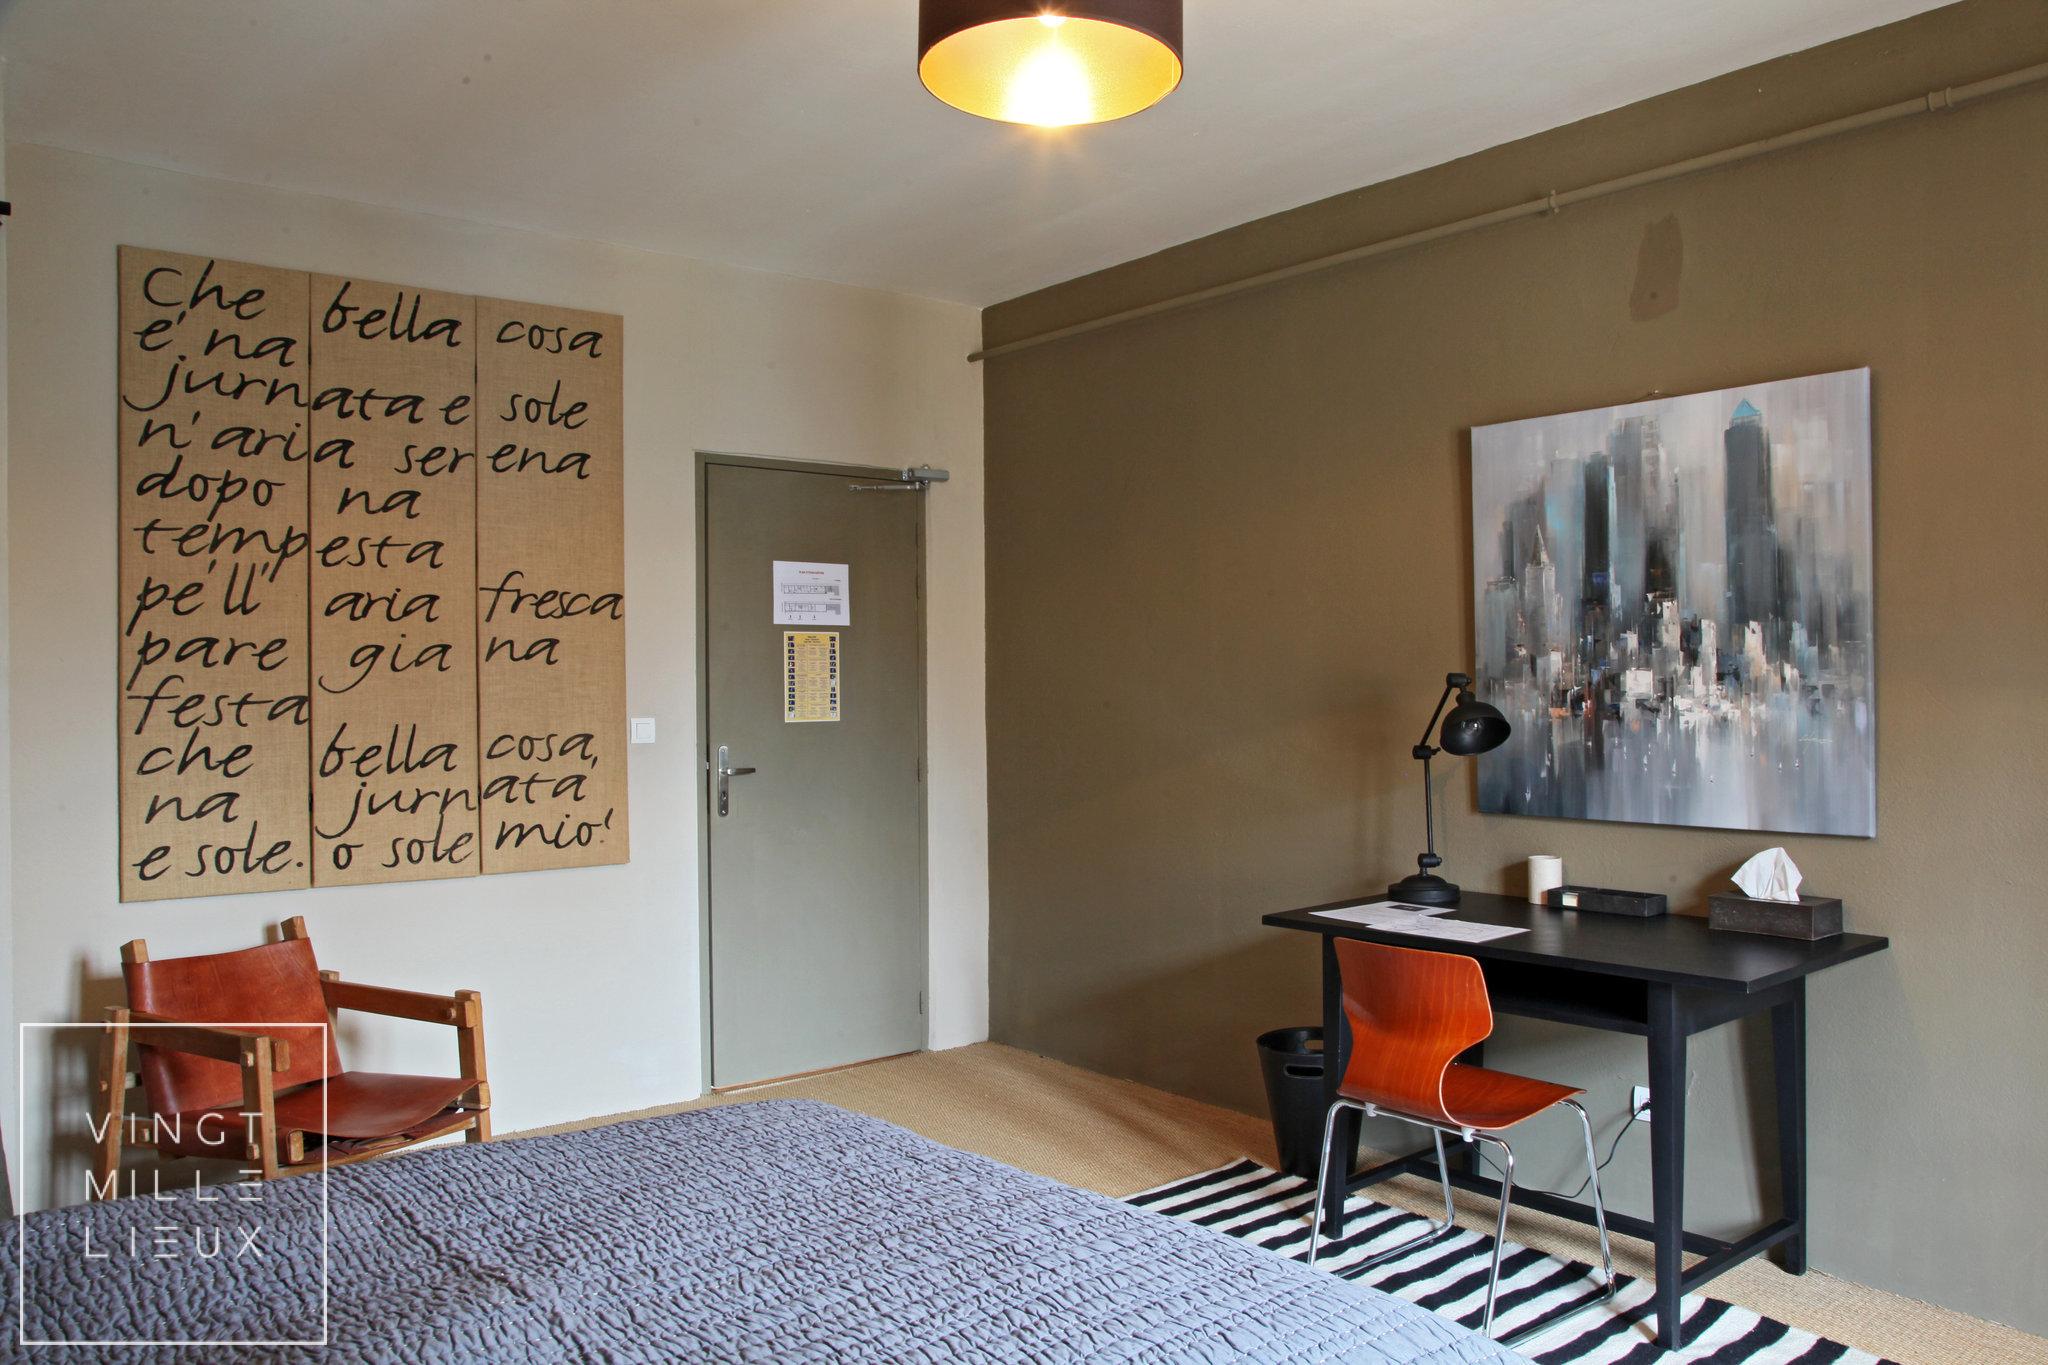 Che bella cosa
e' na
jurnata e sole
n' aria serena
dopo na
tempesta
pe'll' aria fresca
pare gia na
festa
che bella cosa,
na jurnata'
e sole. o sole mio!
VINGT
MILLE
LIEUX